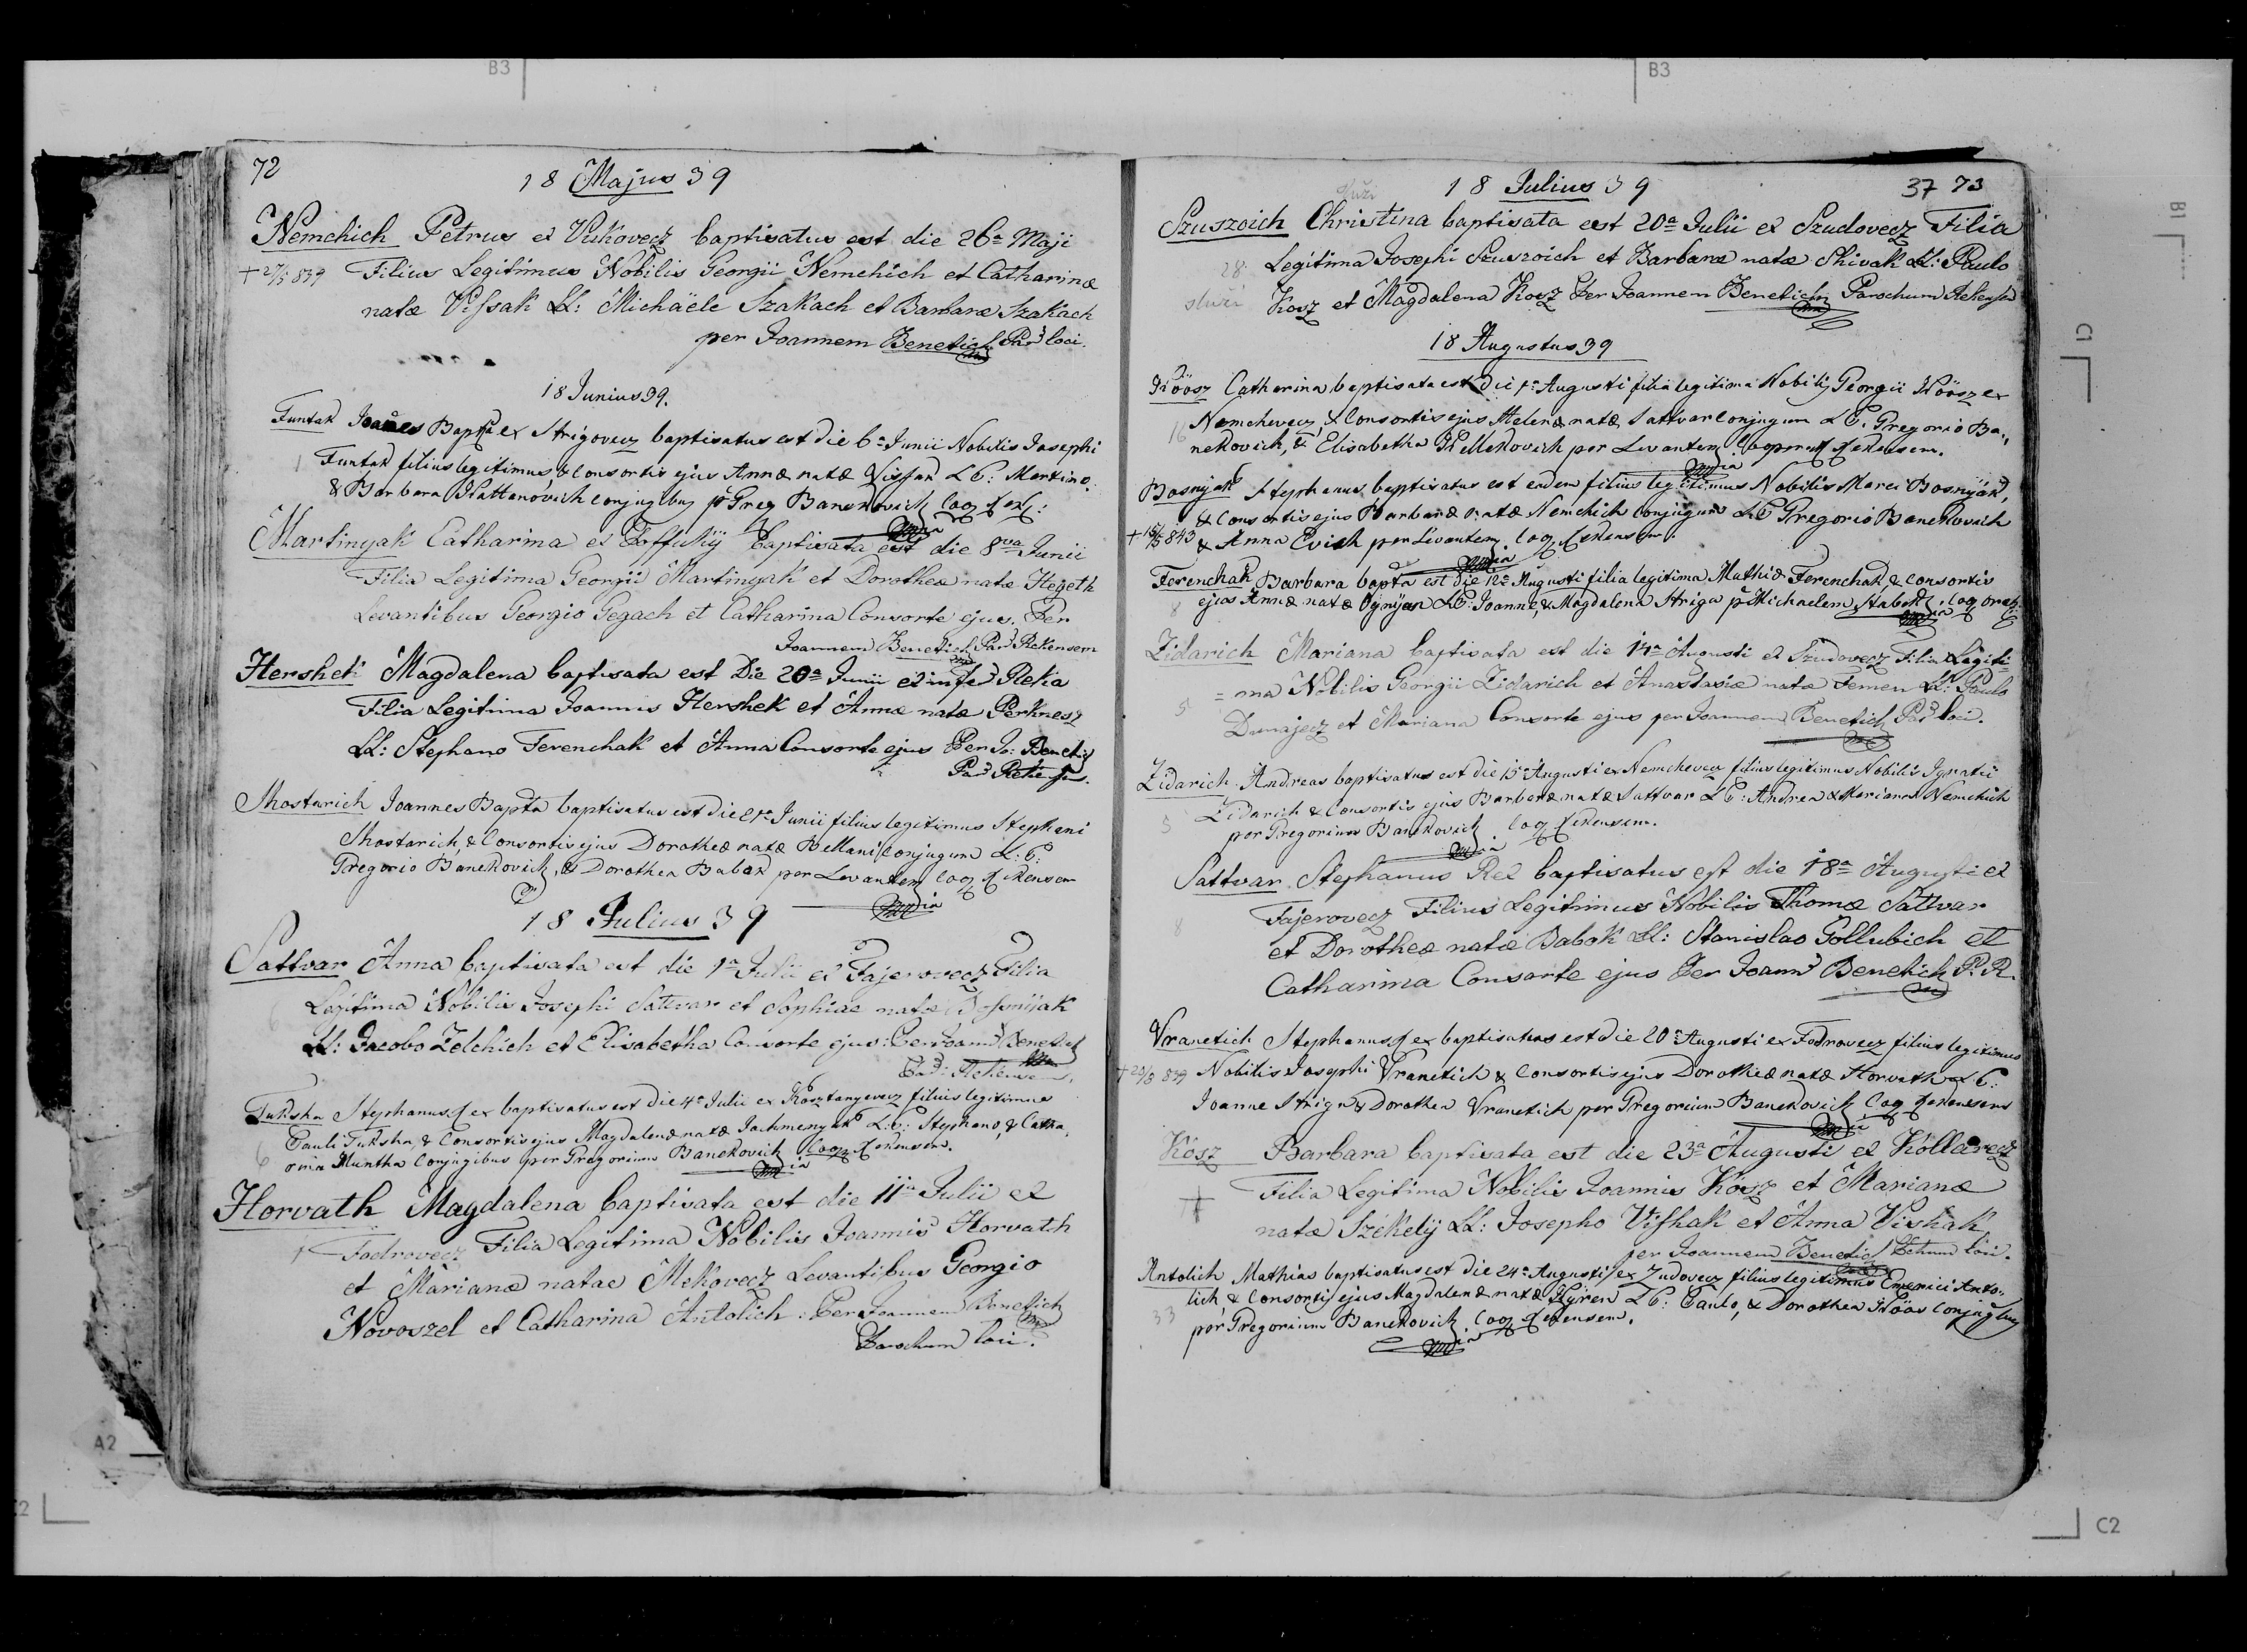 B3
B3
B1
C1
A2
C2
72
18 Majus 39
Nemchich Petrus ex Viskovecz baptisatus est die 26a Maji
+ 27/5 839 Filius Legitimus Nobilis Georgii Nemchich et Catharinæ
natæ Vissak LL: Michaële Szakach et Barbaræ Szakach
per Joannem Benetich Par loci.
18 Junius 39.
Funtak Joañes Bapta ex Strigovecz baptisatus est die 6a Junii Nobilis Josephi
1 Funtak filius legitimus, & Consortis ejus Annæ natæ LC: Martino
& Barbara Conjugbus p Greg Banekovich Coop
Martinyak Catharina ex baptisata est die 8va Junii
Filia Legitima Georgii Martinyak et Dorotheæ natæ Hegeth
Levantibus Georgio Gegach et Catharina Consorte ejus. Per
Joannem Benetich Par Rekensem
Hershek Magdalena baptisata est Die 20a Junii ex Reka
Filia Legitima Joannis Hershek et Annæ natæ Perknesz
LL: Stephano Ferenchak et Anna Consorte ejus Per Jo: Benetich
Par
Mostarich Joannes Bapta baptisatus est die 21a Junii filius legitimus Stephani
Mostarich, & Consortis ejus Dorotheæ natæ Bellani Conjugum L: C:
Gregorio Banekovich, & Dorothea Babak per Levantem Coop Rekensem
18 Julius 39
Sattvar Anna baptisata est die 1a Julii ex Fajerovecz Filia
6 Legitima Nobilis Josephi Sattvar et Sophiae natæ
LL: Jacobo Zelchich et Elisabetha Consorte ejus: Per Joann Benetich
Par: Rekensem.
Tuksha Stephanus Rex baptisatus est die 4a Julii ex Kosztanyevecz filius legitimus
6 Pauli Tuksha, & Consortis ejus Magdalenæ natæ Jachmenyak L: C: Stephano, & Catha,
rina Muntha Conjugibus per Gregorium Banekovich Coop Rekensem.
Horvath Magdalena baptisata est die 11a Julii ex
1 Fodrovecz Filia Legitima Nobilis Joannis Horvath
et Marianæ natae Mekovecz Levantibus Georgio
Novoszel et Catharina Antolich. Per Joannem Benetich
Parochum loci.
18 Julius 39
37 73
Szuszoich Christina baptisata est 20a Julii ex Szudovecz Filia
28 Legitima Josephi Szuszoich et Barbaræ natæ Shivak LL: Paulo
Kosz et Magdalena Kosz Per Joannem Benetich Parochum Rekensem
18 Augustus 39
Köösz Catharina baptisata est die 1a Augusti filia legitima Nobilis Georgii Köösz ex
16 Nemchevecz & Consortis ejus Helenæ natæ Sattvar Conjugum LC. Gregorio Ba,,
nekovich, & Elisabetha per Levantem Cooperat Rekensem.
Bosnyak Stephanus baptisatus est eadem filius legitimus Nobilis Marci Bosnyak,
& Consortis ejus Barbaræ natæ Nemchich Conjugum LC Gregorio Banekovich
+ 843 & Anna Evich per Levantem Coop Rekensem.
Ferenchak Barbara bapta est die 12a Augusti filia legitima Mathiæ Ferenchak & Consortis
8 ejus Annæ natæ Ognyan LC: Joanne, & Magdalena Striga p Michaelem
Zidarich Mariana baptisata est die 14a Augusti ex Szudovecz Filia Legiti-
5 = ma Nobilis Georgii Zidarich et Anastasiæ natæ Femen LL: Paulo
Dunajecz et Mariana Consorte ejus per Joannem Benetich Par loci.
Zidarich Andreas baptisatus est die 15a Augusti ex Nemchevecz filius legitimus Nobilis Ignatii
5 Zidarich & Consortis ejus Barbaræ natæ Sattvar LC: Andrea & Mariana Nemchich
per Gregorium Banekovich Coop Rekensem.
Sattvar Stephanus Rex baptisatus est die 18a Augusti ex
8 Fajerovecz Filius Legitimus Nobilis Thomæ Sattvar
et Dorotheæ natæ Babok LL: Stanislao Gollubich et
Catharina Consorte ejus Per Joann Benetich P. R.
Vranetich Stephanus Rex baptisatus est die 20a Augusti ex Fodrovecz filius legitimus
839 Nobilis Josephi Vranetich & Consortis ejus Dorotheæ natæ Horvath LC:
Joanne Striga & Dorothea Vranetich per Gregorium Banekovich Coop Rekensem
Kösz Barbara baptisata est die 23a Augusti ex Kollarecz
Filia Legitima Nobilis Joannis Kösz et Marianæ
natæ Székelÿ LL: Josepho Vishak et Anna Vishak
per Joannem Benetich loci.
Antolich Mathias baptisatus est die 24a Augusti ex Zudovecz filius legitimus Emerici Anto,,
33 lich, & Consortis ejus Magdalenæ natæ LC: Paulo, & Dorothea Köös Conjugbus
per Gregorium Banekovich Coop Rekensem.
C2